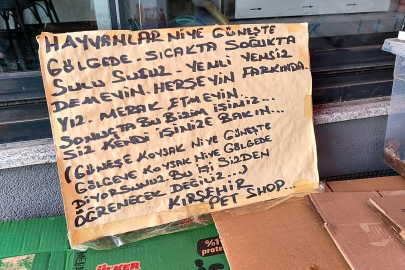 HAYVANLAR NİYE GÜNEŞTE
GÖLGEDE - SICAKTA SOĞUKTA
SULU SUSUZ - YEMLİ YEMSİZ
DEMEYİN. HERŞEYİN FARKINDA
YIZ. MERAK ETMEYİN...
SONUÇTA BU BİZİM İŞİMİZ...
SİZ KENDİ İŞİNİZE BAKIN...
(GÜNEŞE KOYSAK NİYE GÜNEŞTE
GÖLGEYE KOYSAK NİYE GÖLGEDE
DİYORSUNUZ BU İŞİ SİZDEN
ÖĞRENECEK DEĞİLİZ...)
KIRŞEHİR
PET SHOP...
ÜLKER
%10